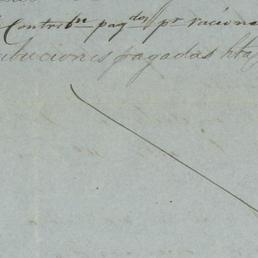 Contribⁿ pagᵈᵒˢ pʳ
buciones pagadas hta